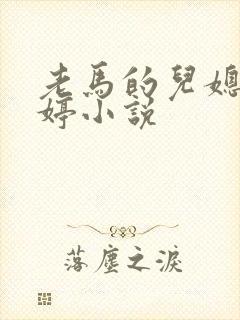 老馬的兒媳
婷小說
落塵之淚